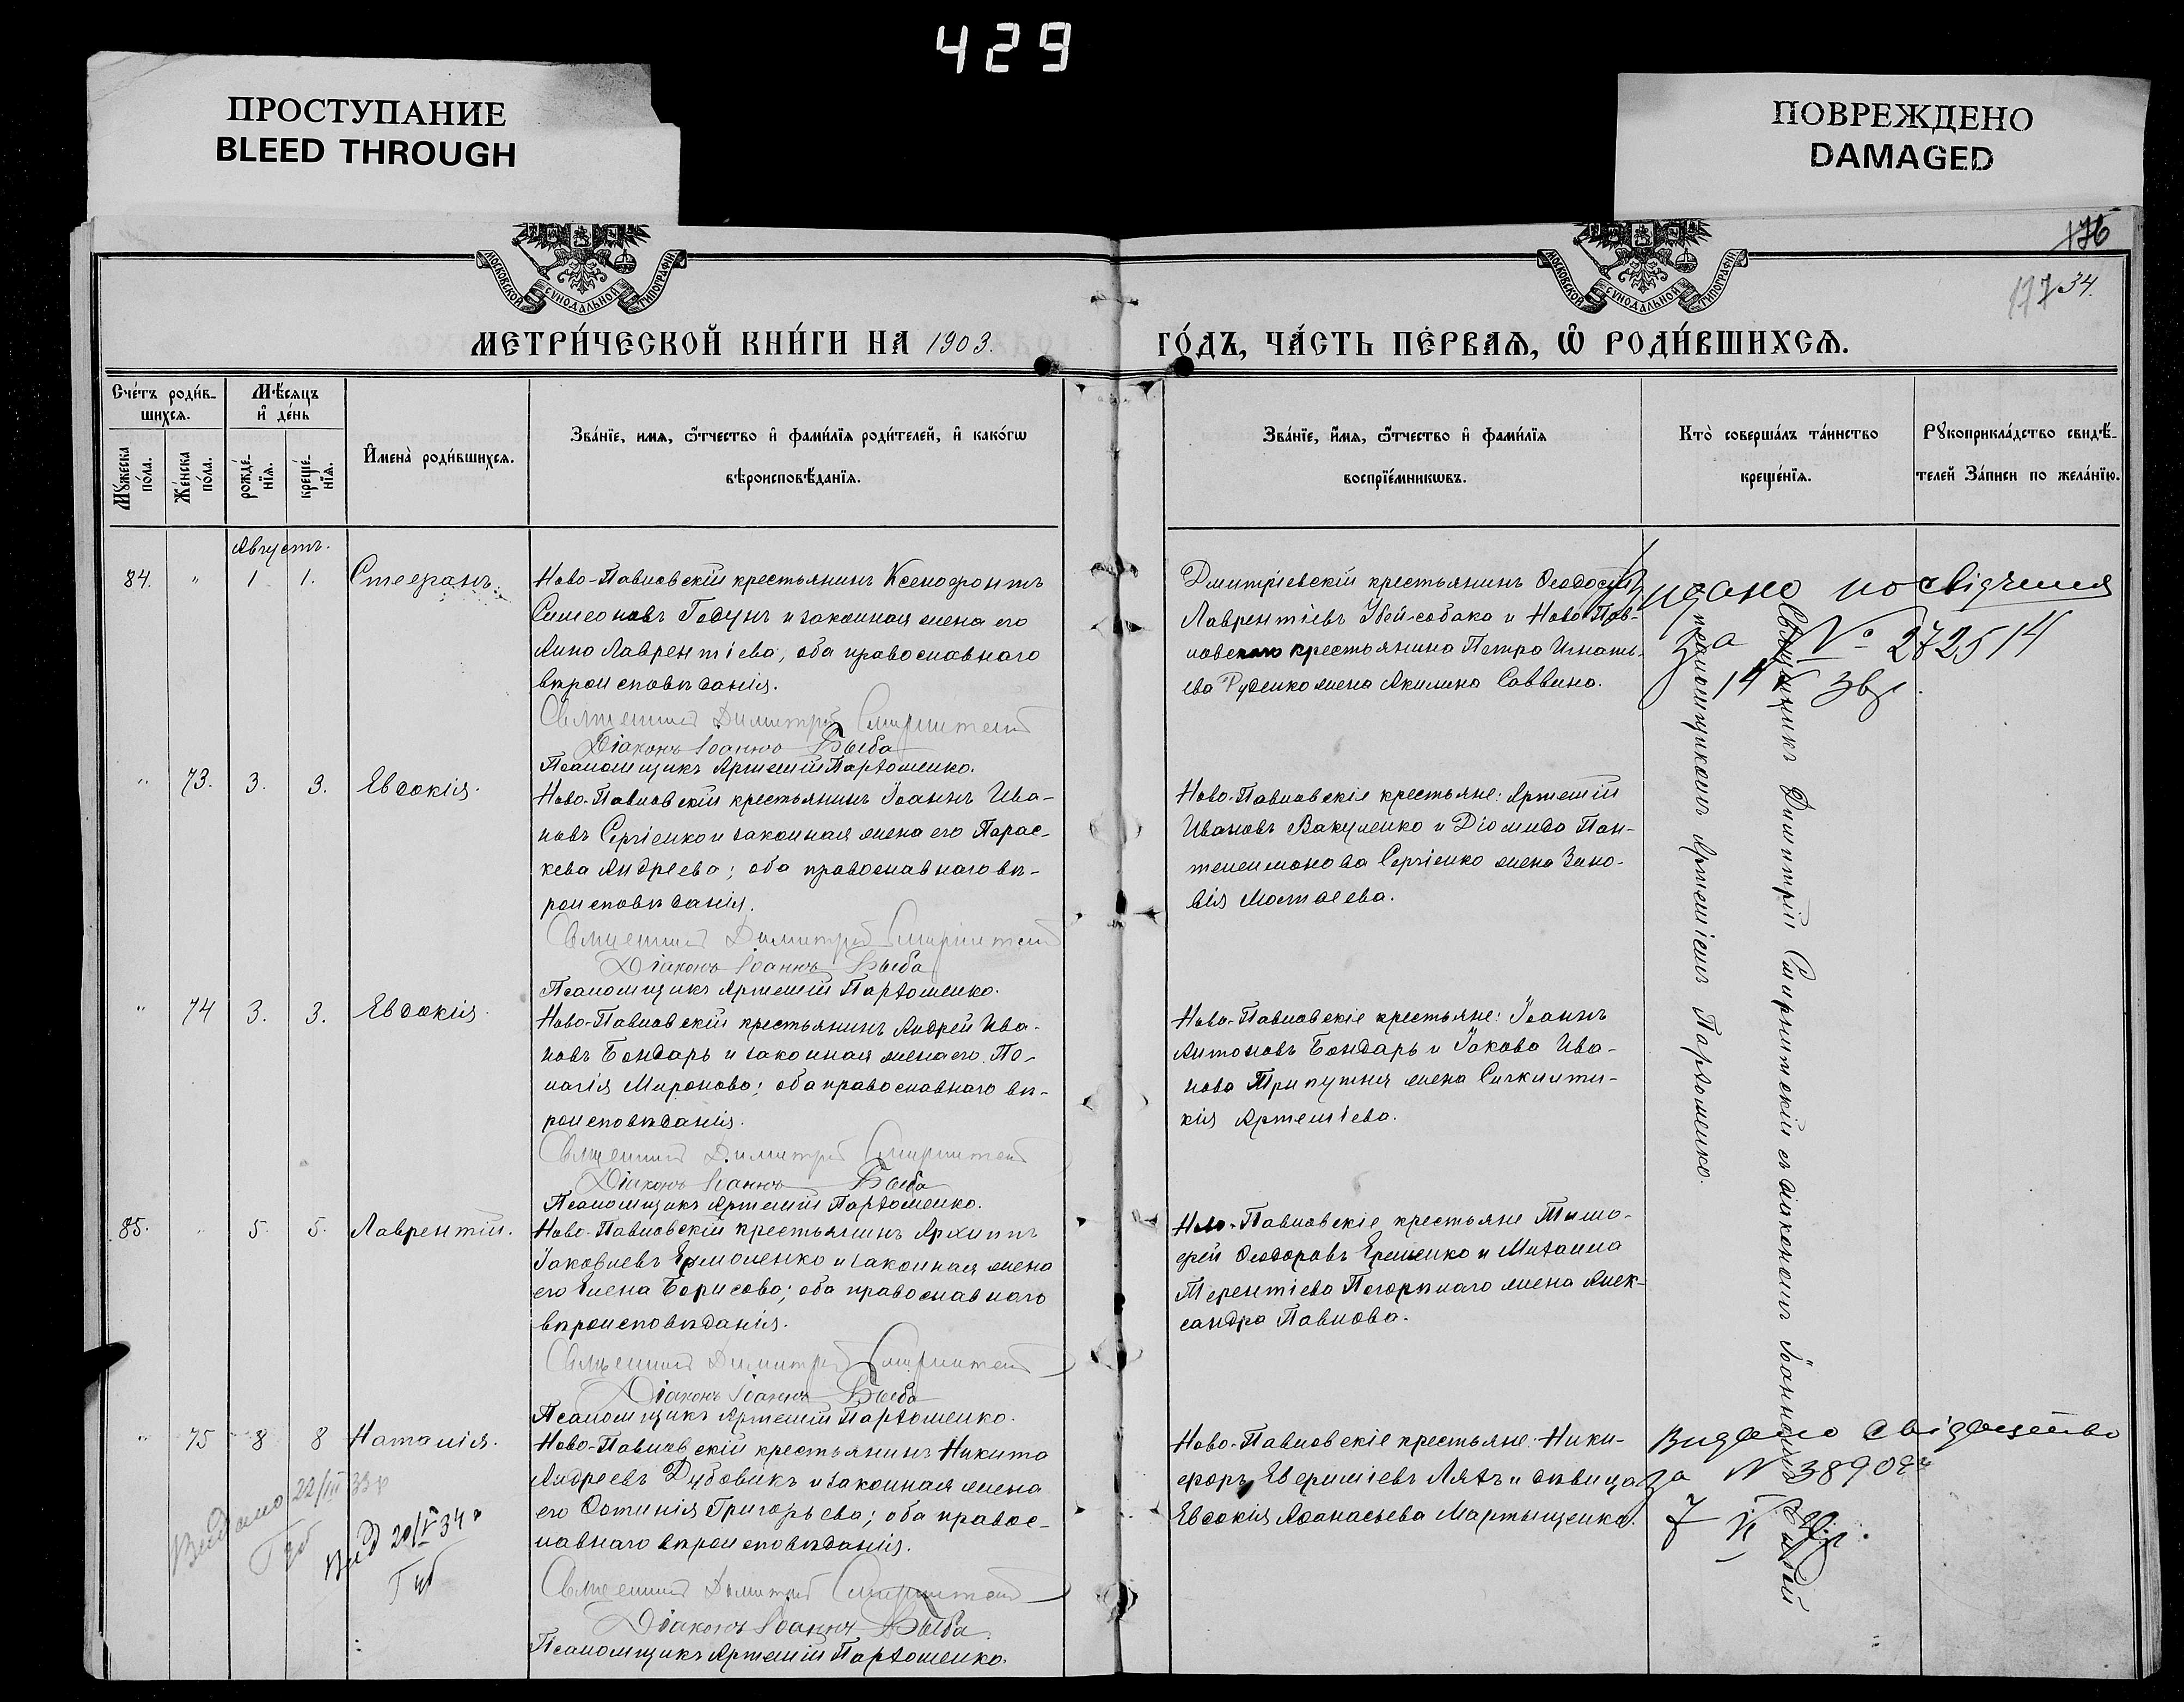 429
ПРОСТУПАНИЕ
BLEED THROUGH
ПОВРЕЖДЕНО
DAMAGED
176
177 34.
МОСКОВСКОЙ СУНОДАЛЬНОЙ ТИПОГРАФІИ
МОСКОВСКОЙ СУНОДАЛЬНОЙ ТИПОГРАФІИ
МЕТРИ́ЧЕСКОЙ КНИ́ГИ НА 1903.
ГО́ДЪ, ЧА́СТЬ ПЕ́РВАѦ, Ѡ҆ РОДИ́ВШИХСѦ.
Сче́тъ роди́в-
шихсѧ.
Мѣ́сѧцъ
и҆ де́нь
Мꙋ́жеска по́ла.
Же́нска по́ла.
рожде́-
нїѧ.
креще́-
нїѧ.
И҆мена̀ роди́вшихсѧ.
Зва́нїе, и҆мѧ, ѻ҆́тчество и҆ фами́лїѧ роди́телей, и҆ како́гѡ
вѣроисповѣ́данїѧ.
Зва́нїе, и҆́мѧ, ѻ҆́тчество и҆ фами́лїѧ
воспрїе́мникѡвъ.
Кто̀ соверша́лъ та́инство
креще́нїѧ.
Рꙋкоприкла́дство свидѣ́-
телей За́писи по жела́нїю.
Августъ.
84. " 1 1. Стефанъ.
Ново-Павловскій крестьянинъ Ксенофонтъ
Симеоновъ Годунъ и законная жена его
Анна Лаврентіева, оба православнаго
вѣроисповѣданія.
Священникъ Димитрій Смирнитскій
Діаконъ Іоаннъ Быба
Псаломщикъ Артемій Пархоменко.
Дмитріевскій крестьянинъ Ѳеодосій
Лаврентіевъ Убей-собака и Ново-Пав-
ловскаго крестьянина Петра Игнать-
ева Руденко жена Акилина Саввина.
Видано посвідчення
За № 272514
14
" 73. 3. 3. Евдокія.
Ново-Павловскій крестьянинъ Іоаннъ Ива-
новъ Сергіенко и законная жена его Парас-
кева Андреева; оба православнаго вѣ-
роисповѣданія.
Священникъ Димитрій Смирнитскій
Діаконъ Іоаннъ Быба
Псаломщикъ Артемій Пархоменко.
Ново-Павловскіе крестьяне: Артемій
Ивановъ Вакуленко и Діомида Пан-
телеимонова Сергіенко жена Зино-
вія Матѳеева.
" 74 3. 3. Евдокія.
Ново-Павловскій крестьянинъ Андрей Ива-
новъ Бондарь и законная жена его Пе-
лагія Миронова; оба православнаго вѣ-
роисповѣданія.
Священникъ Димитрій Смирнитскій
Діаконъ Іоаннъ Быба
Псаломщикъ Артемій Пархоменко.
Ново-Павловскіе крестьяне: Іоаннъ
Антоновъ Бондарь и Іакова Ива-
нова Трипутня жена Сигклити-
кія Артеміева.
85. " 5. 5. Лаврентій.
Ново-Павловскій крестьянинъ Архиппъ
Іаковлевъ Ермоленко и законная жена
его Елена Борисова; оба православнаго
вѣроисповѣданія.
Священникъ Димитрій Смирнитскій
Діаконъ Іоаннъ Быба
Псаломщикъ Артемій Пархоменко.
Ново-Павловскіе крестьяне Тимо-
фей Ѳеодоровъ Еременко и Михаила
Терентіева Погорѣлаго жена Алек-
сандра Павлова.
" 75 8 8 Наталія.
Ново-Павловскій крестьянинъ Никита
Андреевъ Дубовикъ и законная жена
его Фотинія Григорьева; оба правос-
лавнаго вѣроисповѣданія.
Священникъ Димитрій Смирнитскій
Діаконъ Іоаннъ Быба
Псаломщикъ Артемій Пархоменко.
Ново-Павловскіе крестьяне: Ники-
форъ Евфиміевъ Ляхъ и дѣвица
Евдокія Аѳанасьева Мартыщенко.
Видано свідоцтво
за № 38902
7
Священникъ Димитрій Смирнитскій съ діакономъ Іоанномъ Быбой
псаломщикомъ Артеміемъ Пархоменко.
Видано 22/III 33р
Вид 20/V 34р